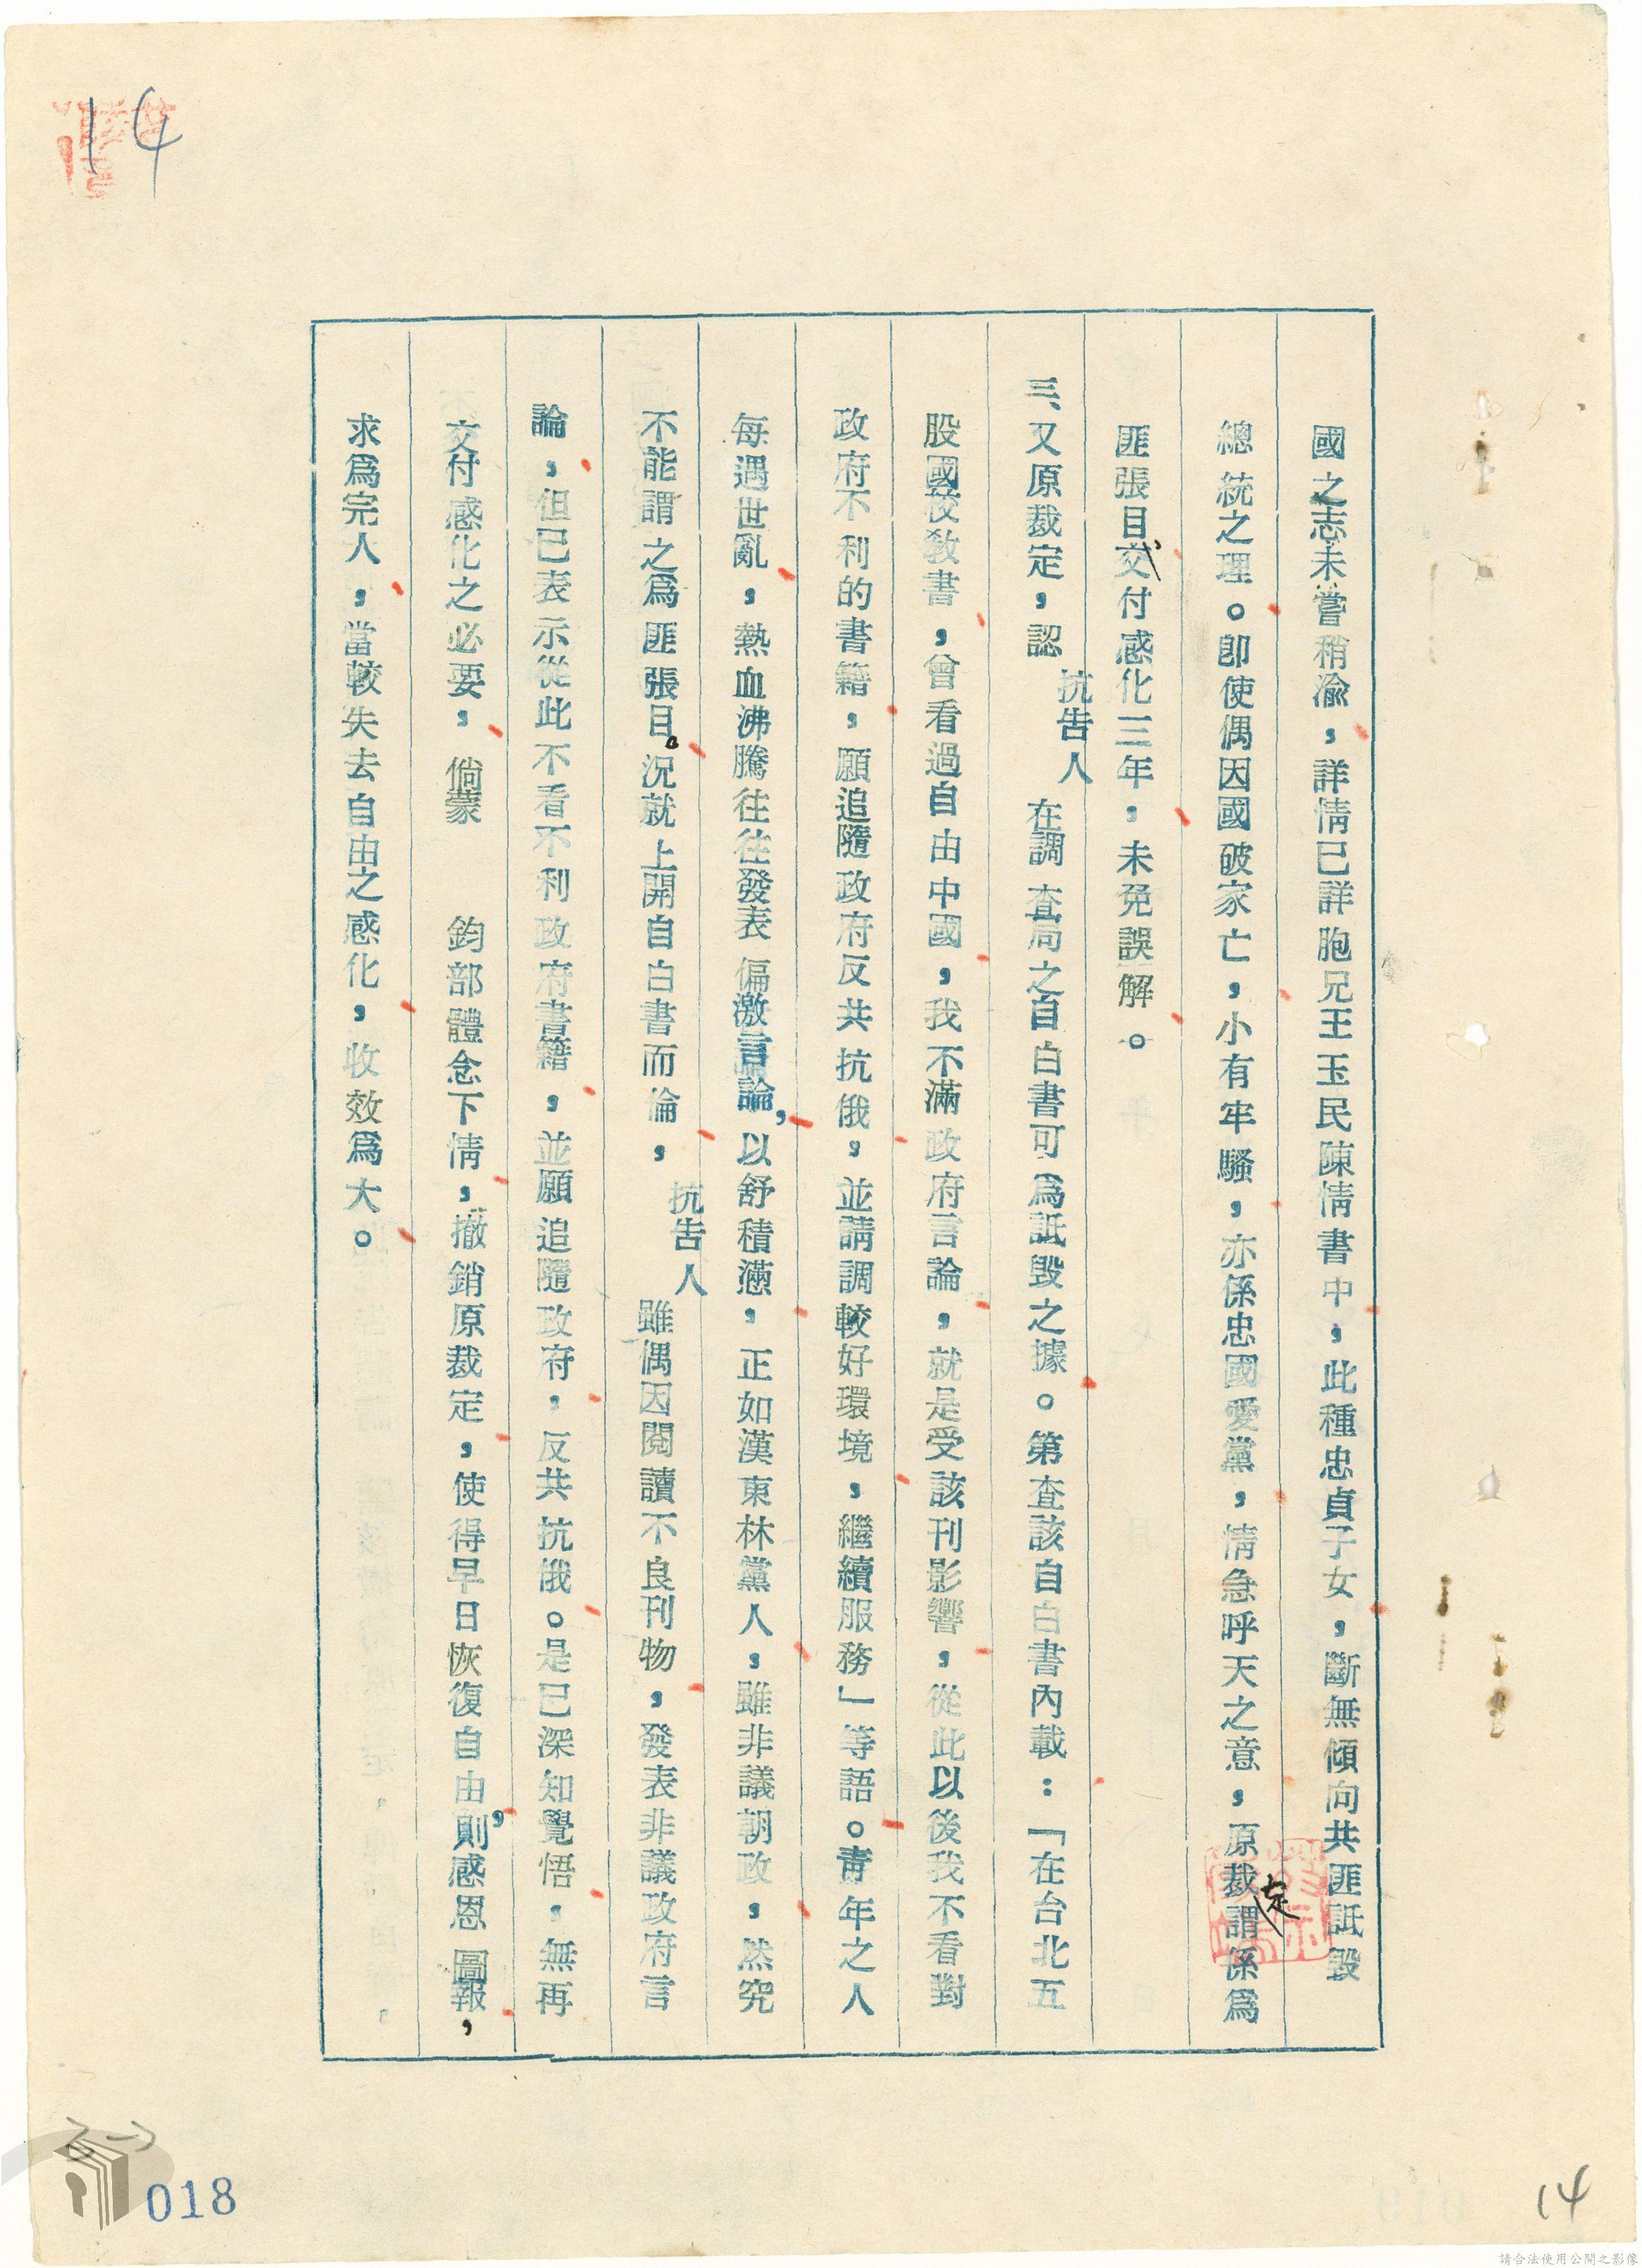 14
國之志未嘗稍渝，詳情已詳胞兄王玉民陳情書中，此種忠貞子女，斷無傾向共匪詆毀
總統之理。卽使偶因國破家亡，小有牢騷，亦係忠國愛黨，情急呼天之意，原裁定謂係爲
匪張目、交付感化三年，未免誤解。
三、又原裁定，認抗告人在調查局之自白書可爲詆毀之據。第查該自白書內載：「在台北五
股國校敎書，曾看過自由中國，我不滿政府言論，就是受該刊影響，從此以後我不看對
政府不利的書籍，願追隨政府反共抗俄，並請調較好環境，繼續服務」等語。靑年之人
每遇世亂，熱血沸騰往往發表偏激言論，以舒積懣，正如漢東林黨人，雖非議朝政，然究
不能謂之爲匪張目。況就上開自白書而倫，抗告人雖偶因閱讀不良刊物，發表非議政府言
論，但已表示從此不看不利政府書籍，並願追隨政府，反共抗俄。是已深知覺悟，無再
交付感化之必要，倘蒙　鈞部體念下情，撤銷原裁定，使得早日恢復自由，則感恩圖報，
求爲完人，當較失去自由之感化，收效爲大。
018
14
請合法使用公開之影像